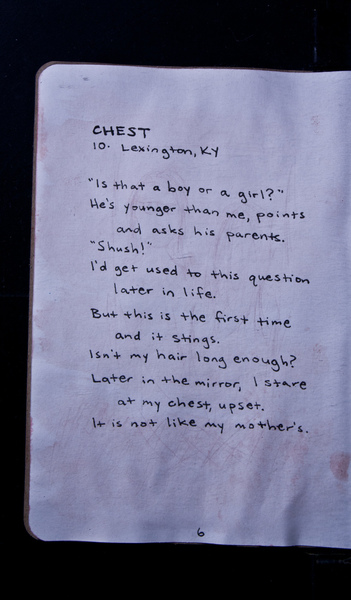 CHEST
10. Lexington, KY
"Is that a boy or a girl?"
He's younger than me, points
and asks his parents.
"Shush!"
I'd get used to this question
later in life.
But this is the first time
and it stings.
Isn't my hair long enough?
Later in the mirror, I stare
at my chest, upset.
It is not like my mother's.
6